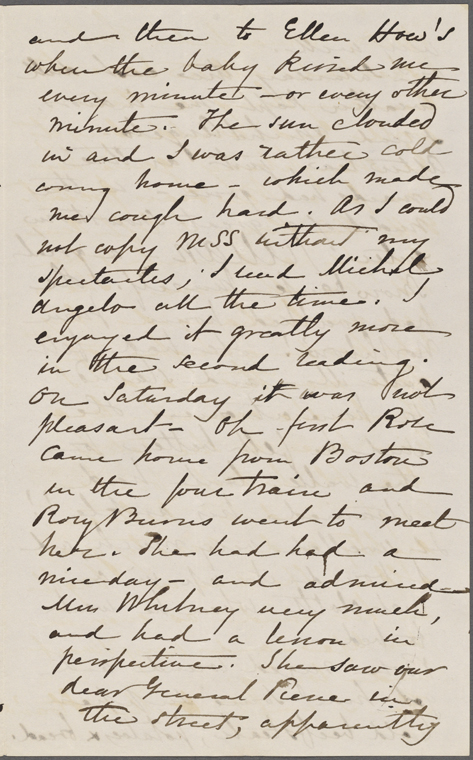 and then to Ellen How's
when the baby kissed me
every minute - or every other
minute. The sun clouded
in and I was rather cold
coming home - which made
me cough hard. As I could
not copy MSS without my
spectacles, I read Michel
Angelo all the time. I
enjoyed it greatly more
in the second reading.
On Saturday it was not
pleasant - Oh - first Rose
came home from Boston
in the four train and
Rory Burns went to meet
her. She had had a
nice day - and admired
Miss Whitney very much,
and had a lesson in
perspective. She saw our
dear General Pierce in
the street, apparently